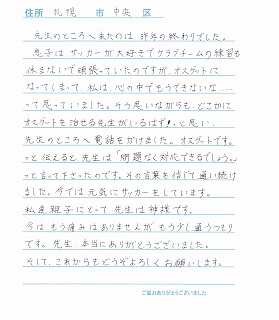 住所 札幌 市 中央 区
先生のところへ来たのは昨年の終わりでした。
息子は、サッカーが大好きでクラブチームの練習も
休まないで頑張っていたのですが、オスグットに
なってしまって、私は、心の中でもうできないな……
って思っていました。そう思いながらも、どこかに
オスグットを治せる先生がいるはず!と思い、
先生のところへ電話をかけました。オスグットです。
っと伝えると、先生は「問題なく対応できるでしょう。」
っと言って下さったのです。その言葉を信じて通い続け
ました。今では元気にサッカーをしています。
私達親子にとって、先生は神様です。
今は、もう痛みはありませんが、もう少し通うつもり
です。先生、本当にありがとうございました。
そして、これからもどうぞよろしくお願いします。
ご協力ありがとうございました